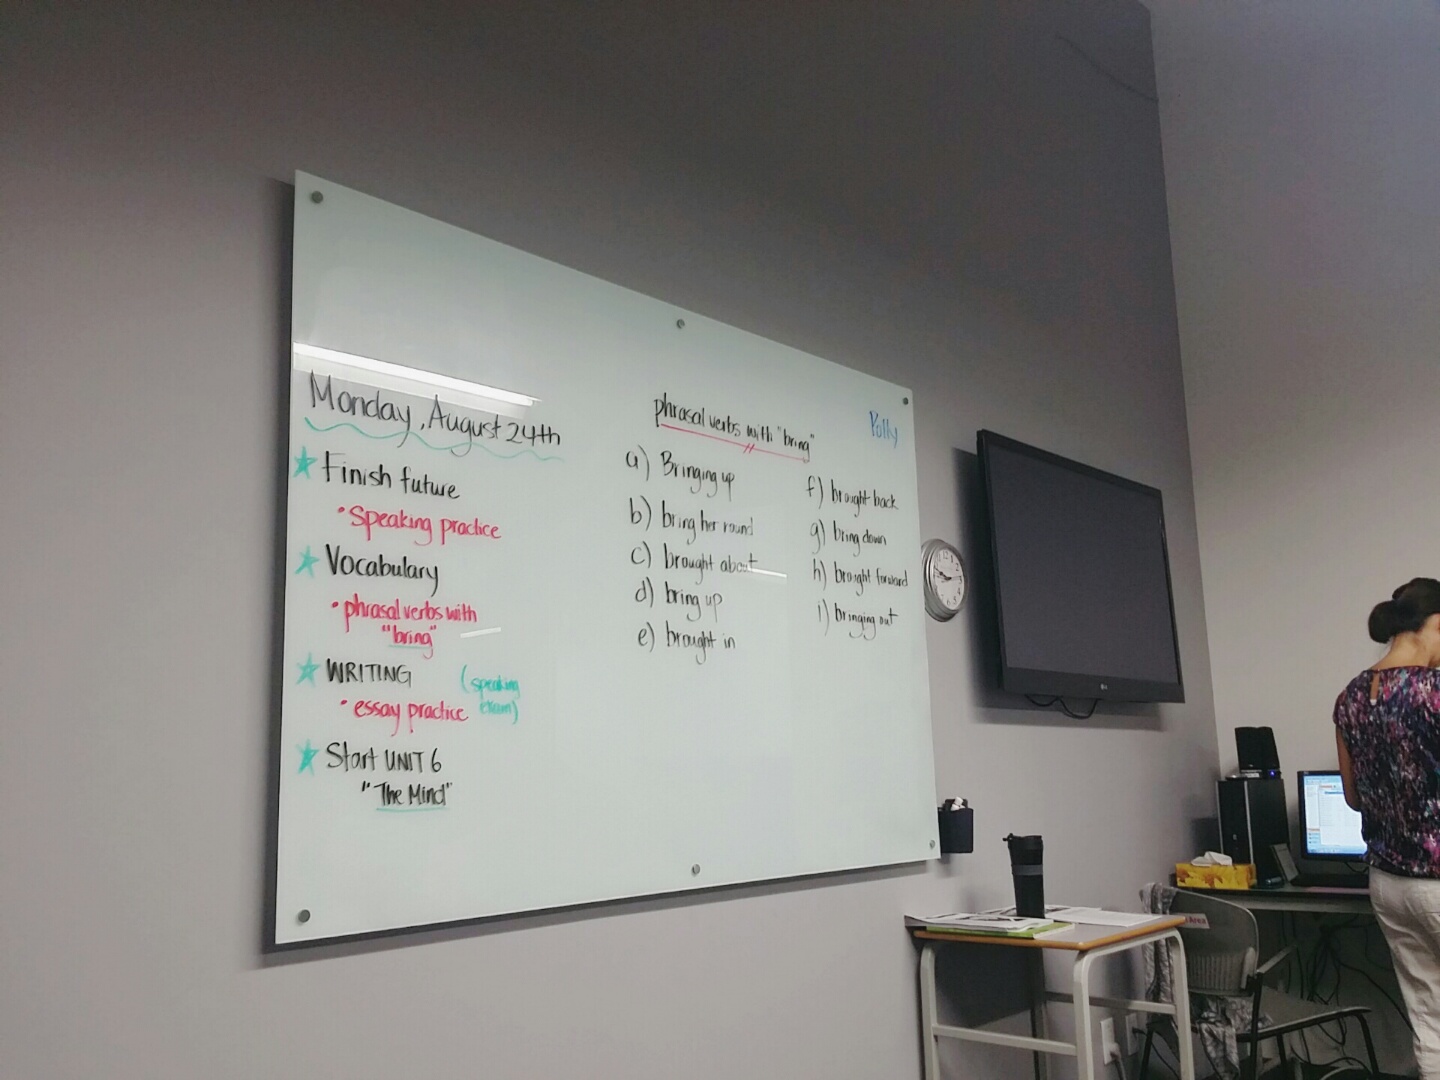 Monday, August 24th
Finish future
• Speaking practice
Vocabulary
• phrasal verbs with
"bring"
WRITING
• essay practice
(speaking
exam)
Start UNIT 6
"The Mind"
phrasal verbs with "bring"
a) Bringing up
b) bring her round
c) brought about
d) bring up
e) brought in
Polly
f) brought back
g) bring down
h) brought forward
i) bringing out